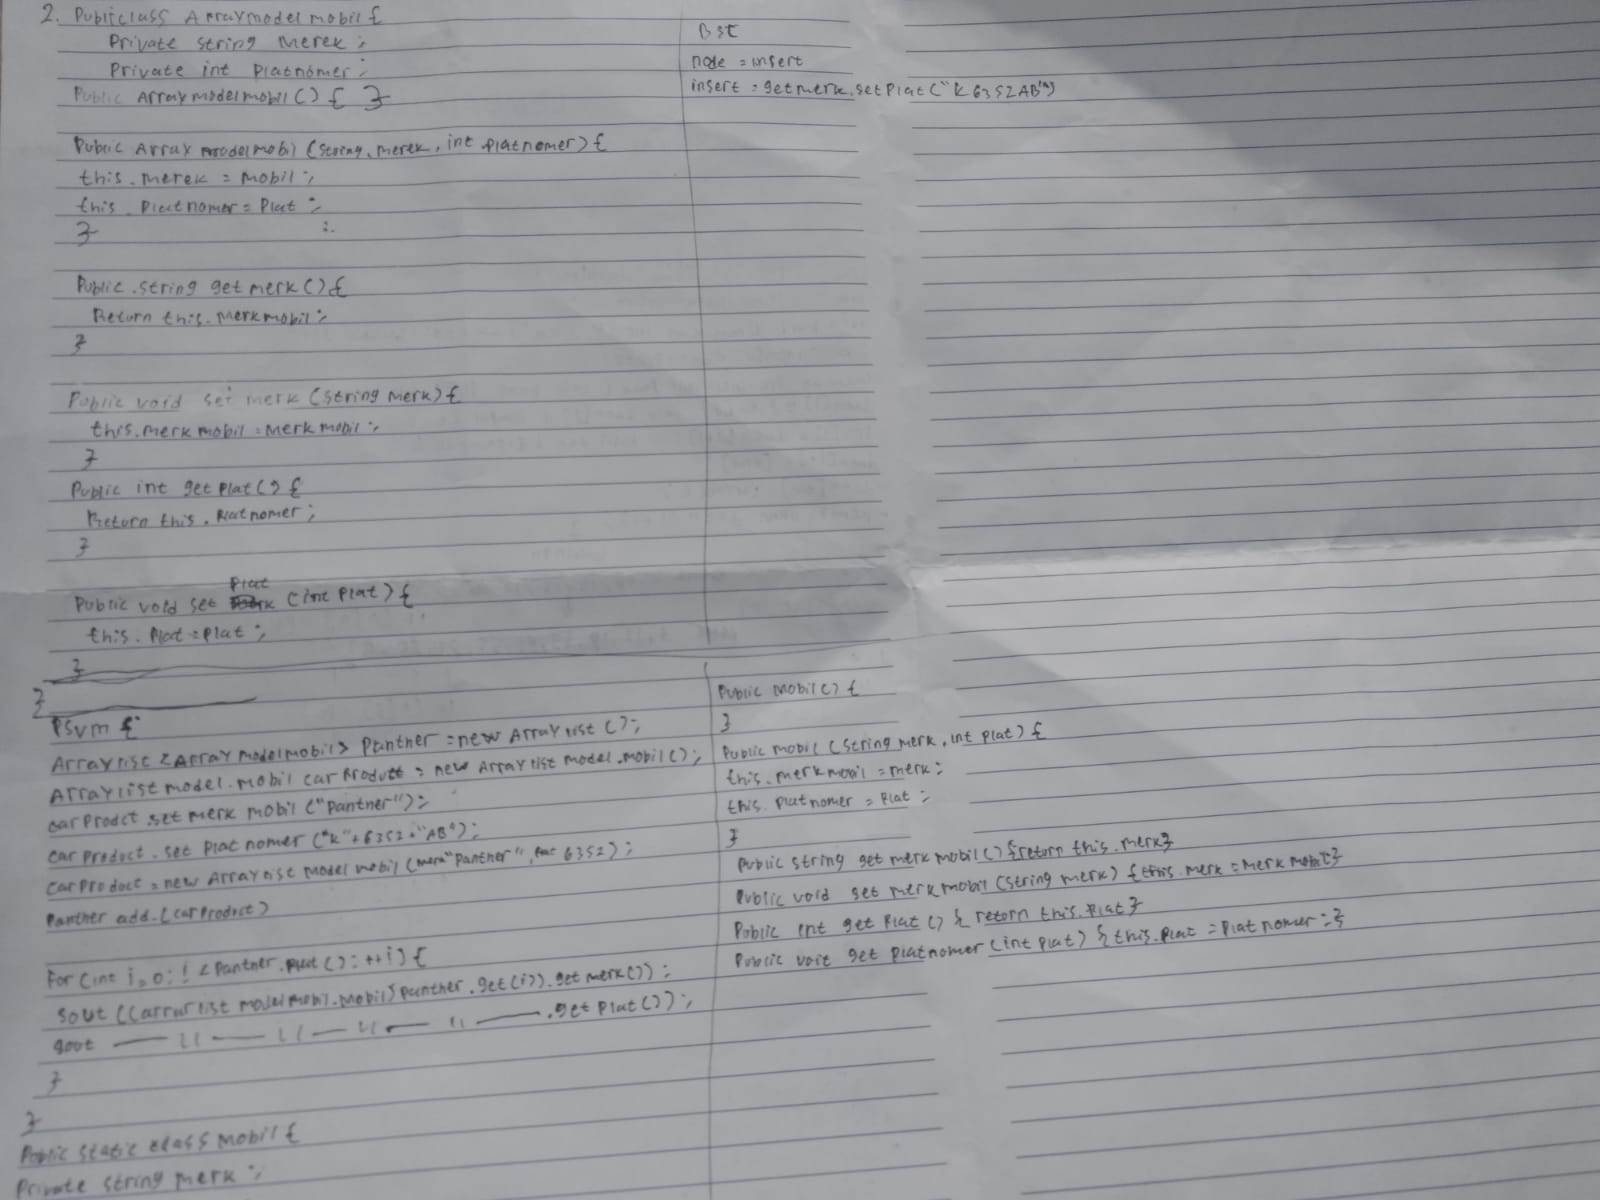 2. Public class Arraymodel mobil {
Private string merek ;
Private int Platnomer ;
Public Arraymodelmobil () { }
Public Array modelmobil (string, merek, int platnomer) {
this. merek = mobil ;
this. Platnomer = Plat ;
}
Public .string get merk () {
Return this. merkmobil ;
}
Public void set merk (string merk) {
this. merk mobil = merk mobil ;
}
Public int get Plat () {
Return this. Platnomer ;
}
Public void set Plat (int Plat) {
this. Plat = plat ;
}
}
Bst
node = insert
insert = getmerk. set Plat ("K 6352AB")
Psvm {
Arraylist <Array modelmobil> Pantner = new Array list () ;
Array list model. mobil car Product = new Array list model .mobil () ;
car Prodct .set merk mobil ("pantner") ;
car product . set plat nomer ("K"+6352+"AB") ;
car Product = new Array list model mobil (merk "pantner", Plat 6352) ;
Panther add. (car Product)
For (int i = 0 ; ! < Pantner. Plat () ; ++i) {
Sout ((arrar list model mobil. Mobil) panther .get (i)). get merk ()) ;
Sout — 11 — 11 — 11 — 11 — . get Plat ()) ;
}
}
Public static class mobil {
Private string merk ;
Public Mobil () {
}
Public mobil (string merk, int plat) {
this. merkmobil = merk ;
this. Platnomer = Plat ;
}
Public string get merk mobil () {return this. merk}
Public void set merk mobil (string merk) {this. merk = merk mobil}
Public int get Plat () { return this. Plat }
Public voit get platnomer (int plat) { this. plat = plat nomer ; }